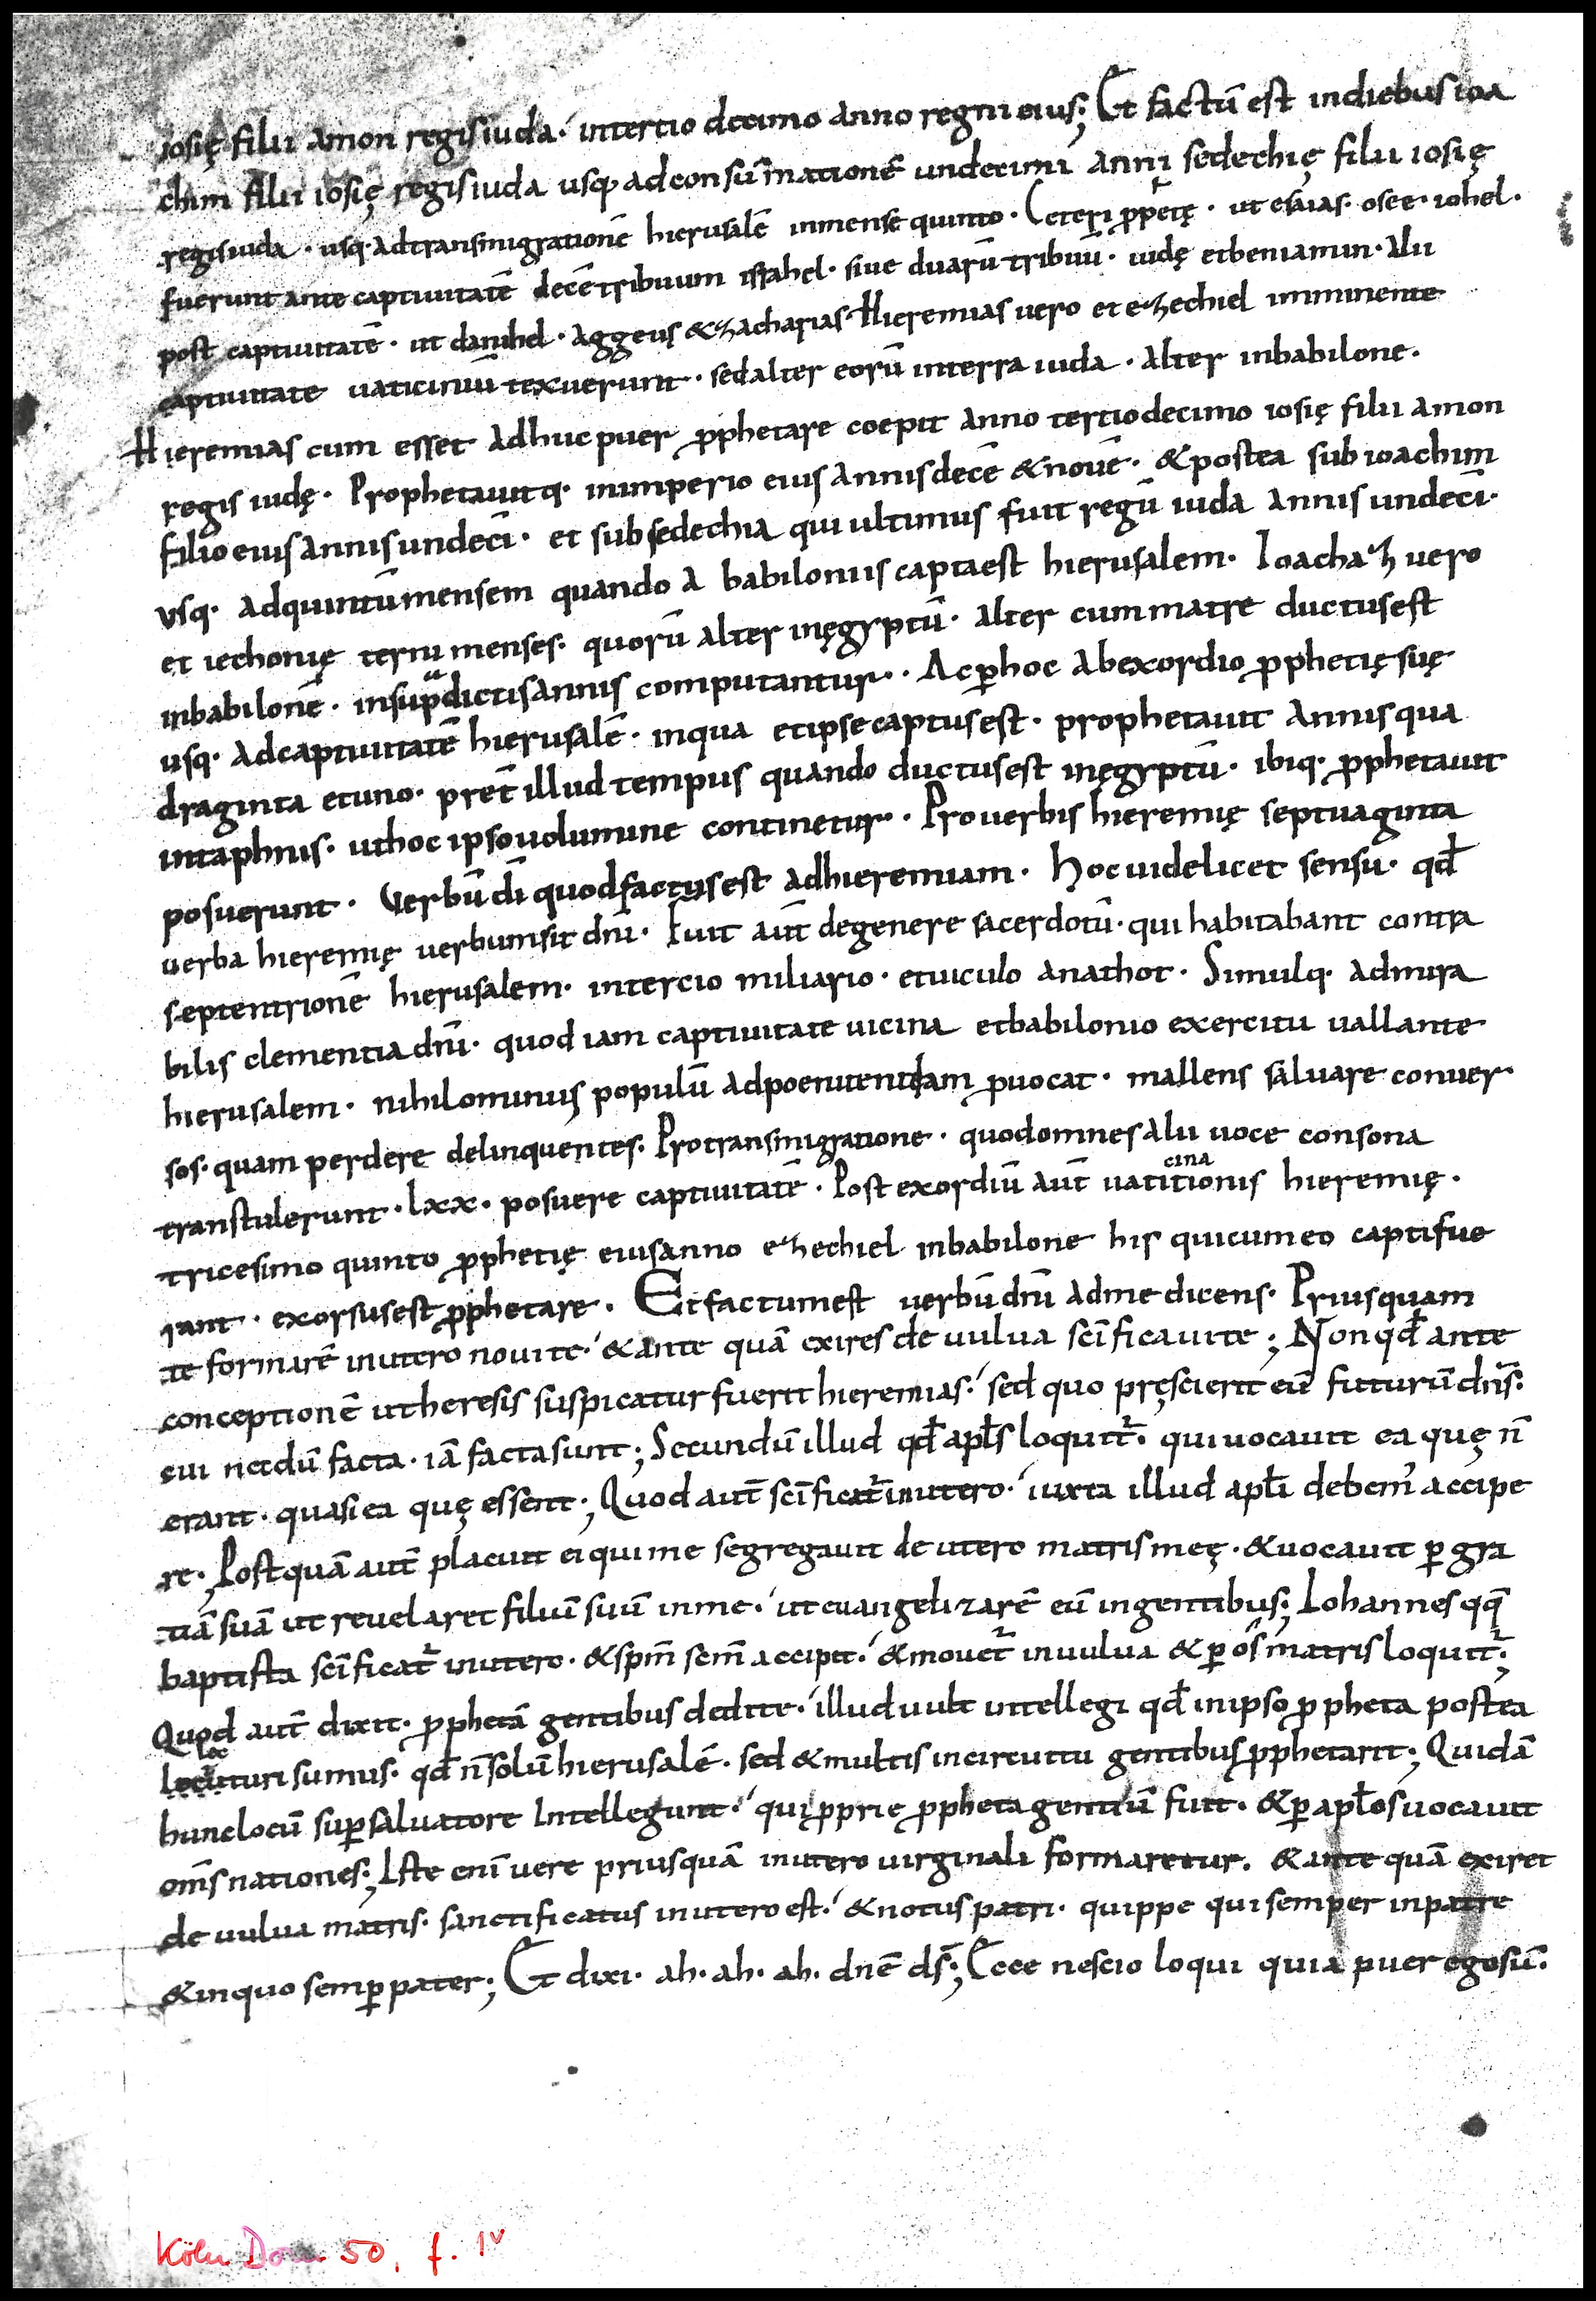 iosię filii amon regis iuda· intertio decimo anno regni eius; Et factū est indiebus ioa
chim filii iosię regis iuda usq· adconsūmationē undecimi anni sedechię filii iosię
regis iuda· usq· adtransmigrationē hierusalē inmense quinto· Ceteri p̄petę· ut esaias· osee· iohel·
fuerunt ante captiuitatē decē tribuum israhel· siue duarū tribuū· iudę etbeniamin· Alii
post captiuitatē· ut danihel· aggeus &zacharias· Hieremias uero et ezechiel imminente
captiuitate uaticiniū texuerunt· sedalter eorū interra iuda· alter inbabilone·
Hieremias cum esset adhuc puer p̄phetare coepit anno tertiodecimo iosię filii amon
regis iudę· Prophetauitq· inimperio eius annis decē &nouē· &postea sub ioachim
filio eius annis undecī· et sub sedechia qui ultimus fuit regū iuda annis undecī·
usq· adquintū mensem quando a babiloniis captaest hierusalem· Ioachaz uero
et iechonię terni menses· quorū alter inęgyptū· alter cum matre ductusest
inbabilonē· insup̄dictis annis computantur· Ac p̄hoc abexordio p̄phetię suę
usq· adcaptiuitatē hierusalē· inqua etipse captusest· prophetauit annis qua
draginta etuno· pret̄ illud tempus quando ductusest inęgyptū· ibiq· p̄phetauit
intaphnis· uthoc ipso uolumine continetur· Pro uerbis hieremię septuaginta
posuerunt· Verbū dī quodfactusest adhieremiam· Hoc uidelicet sensu· qđ
uerba hieremię uerbumsit dnī· Fuit aut̄ degenere sacerdotū· qui habitabant contra
septentrionē hierusalem· intercio miliario· etuiculo anathot· Simulq· admira
bilis clementia dnī· quod iam captiuitate uicina etbabilonio exercitu uallante
hierusalem· nihilominus populū adpoenitentdam p̄uocat· mallens saluare conuer
sos· quam perdere delinquentes· Protransmigratione· quodomnes alii uoce consona
transtulerunt· lxx· posuere captiuitatē· Post exordiū aut̄ uaticinationis hieremię·
tricesimo quinto p̄phetię eiusanno ezechiel inbabilone his quicumeo captifue
rant· exorsusest p̄phetare· Et factumest uerbū dnī adme dicens· Priusquam
te formarē inutero nouite· &ante quā exires de uulua scīficauite; Non qđ ante
conceptionē utheresis suspicatur fuerit hieremias· sed quo pręscierit eū futurū dn̄s·
cui necdū facta· iā facta sunt; Secundū illud qđ apls̄ loquit̄· qui uocauit ea quę n̄
erant· quasi ea quę essent; Quod aut̄ scīficat̄ inutero· iuxta illud aplī debem' accipe
re· Postquā aut̄ placuit ei qui me segregauit de utero matris meę· &uocauit p̄ gra
tiā suā ut reuelaret filiū suū inme· ut euangelizarē eū ingentibus; Iohannes qq̄
baptista scīficat̄ inutero· &spm̄ scm̄ accipit· &mouet̄ inuulua &p̄ os matris loquit̄;
Quod aut̄ dixit· p̄phetā gentibus dedite· illud uult intellegi qđ inipso p̄pheta postea
lecturi sumus· qđ n̄ solū hierusalē· sed &multis incircuitu gentibus p̄phetarit; Quidā
hunc locū sup̄ saluatore Intellegunt· qui p̄prie p̄pheta gentiū fuit· &p̄ aplōs uocauit
om̄s nationes; Iste enī uere priusquā inutero uirginali formaretur· &ante quā exiret
de uulua matris· sanctificatus inutero est· &notus patri· quippe qui semper inpatre
&inquo semp̄ pater; Et dixi· ah· ah· ah· dnē ds̄; Ecce nescio loqui quia puer ego sū·
Köln Dom 50, f. 1v